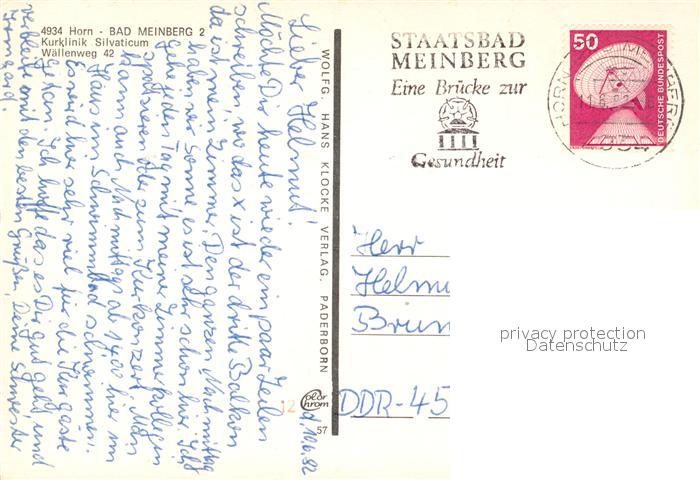 4934 Horn - BAD MEINBERG 2
Kurklinik Silvaticum
Wällenweg 42
d. 10.6.82
Lieber Helmut!
Möchte Dir heute wieder ein paar Zeilen
schreiben, wo das x ist der dritte Balkon
da ist mein Zimmer. Den ganzen Nachmittag
haben wir Sonne es ist sehr schön hier. Ich
gehe jeden Tag mit meiner Zimmerkollegin
spazieren oder zum Kurkonzert. Man
kann auch Nachmittags ab 1400 hier im
Haus im Schwimmbad schwimmen.
Es wird hier sehr viel für die Kurgäste
getan. Ich hoffe das es Dir gut geht und
verbleibe mit den besten Grüßen, Deine Schwester
Irmgard.
WOLFG. HANS KLOCKE VERLAG, PADERBORN
57
12
Color Chrom
STAATSBAD
MEINBERG
Eine Brücke zur
Gesundheit
50
DEUTSCHE BUNDESPOST
HORN
Herr
Helmu
Brun
DDR-45
privacy protection
Datenschutz